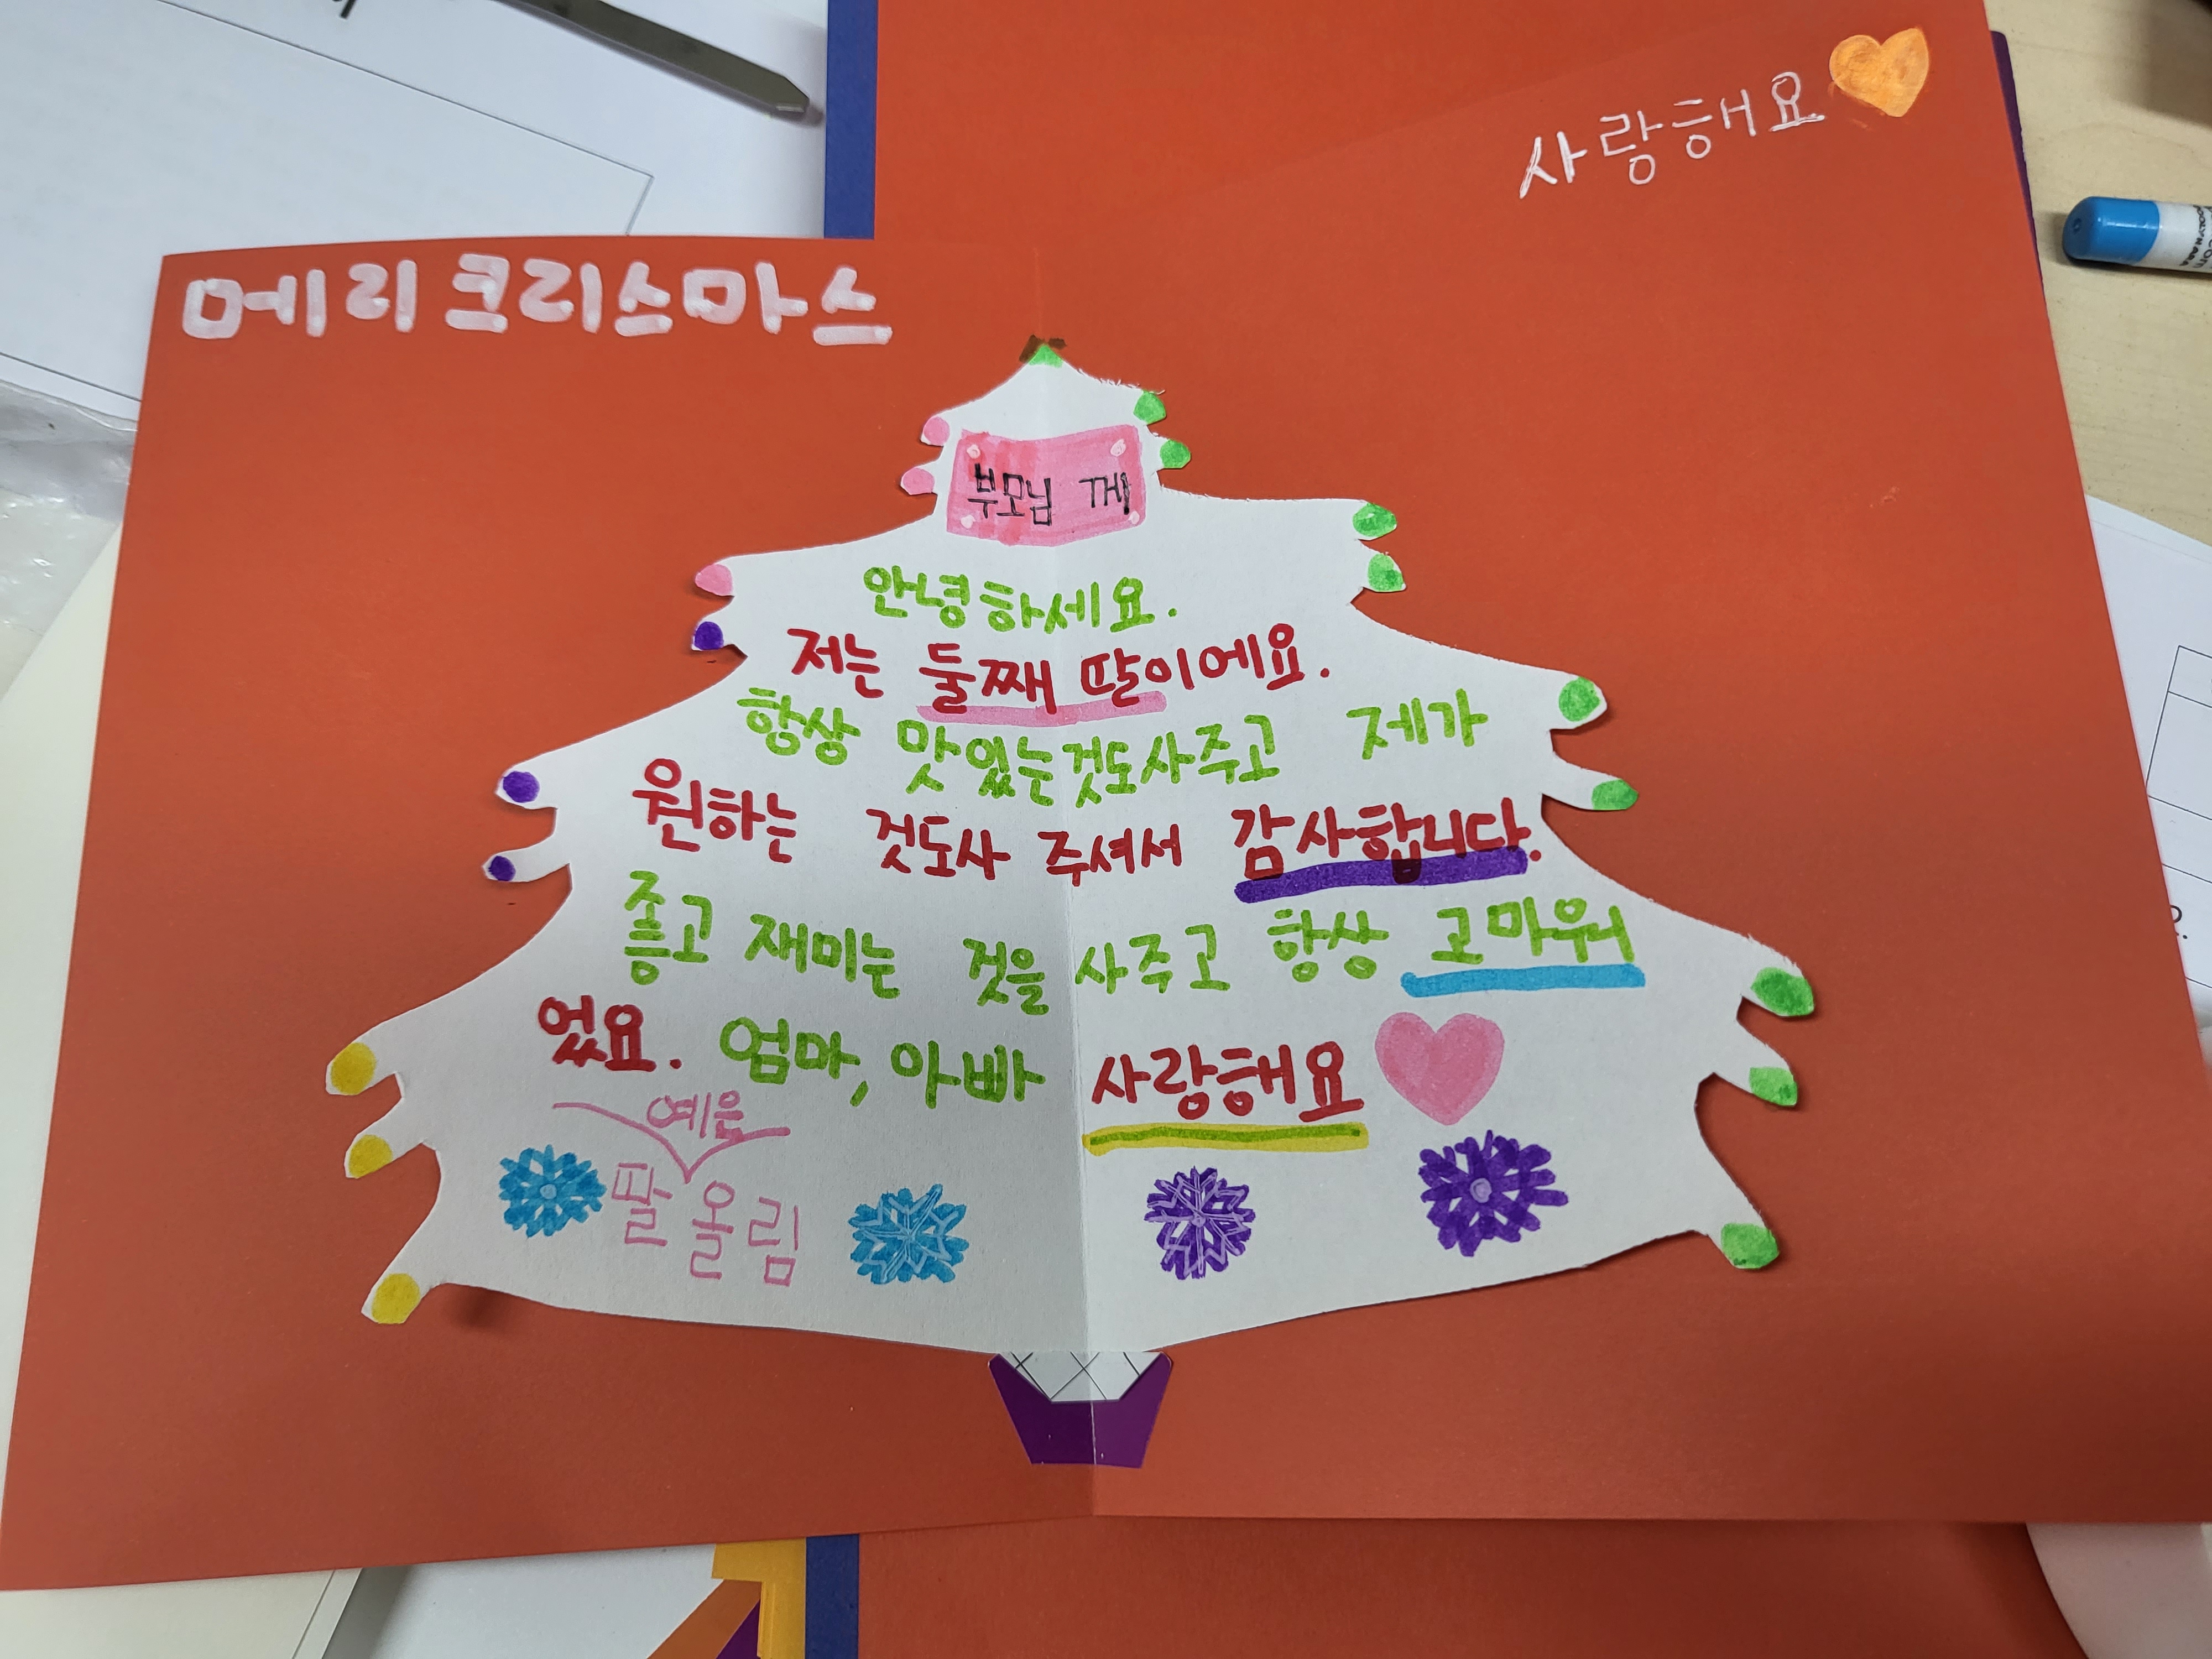 메리크리스마스
사랑해요
부모님 께
안녕하세요.
저는 둘째 딸이에요.
항상 맛있는것도사주고 제가
원하는 것도사 주셔서 감사합니다.
즐고 재미는 것을 사주고 항상 고마워
었요. 엄마, 아빠 사랑해요
예은
딸 올림